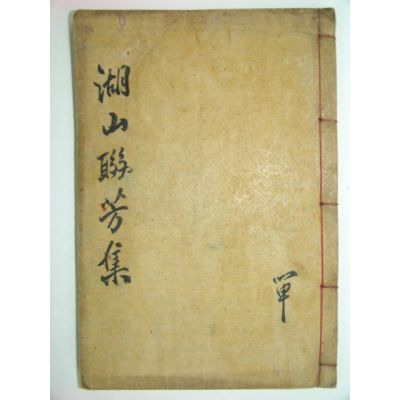 湖山聯芳集
單